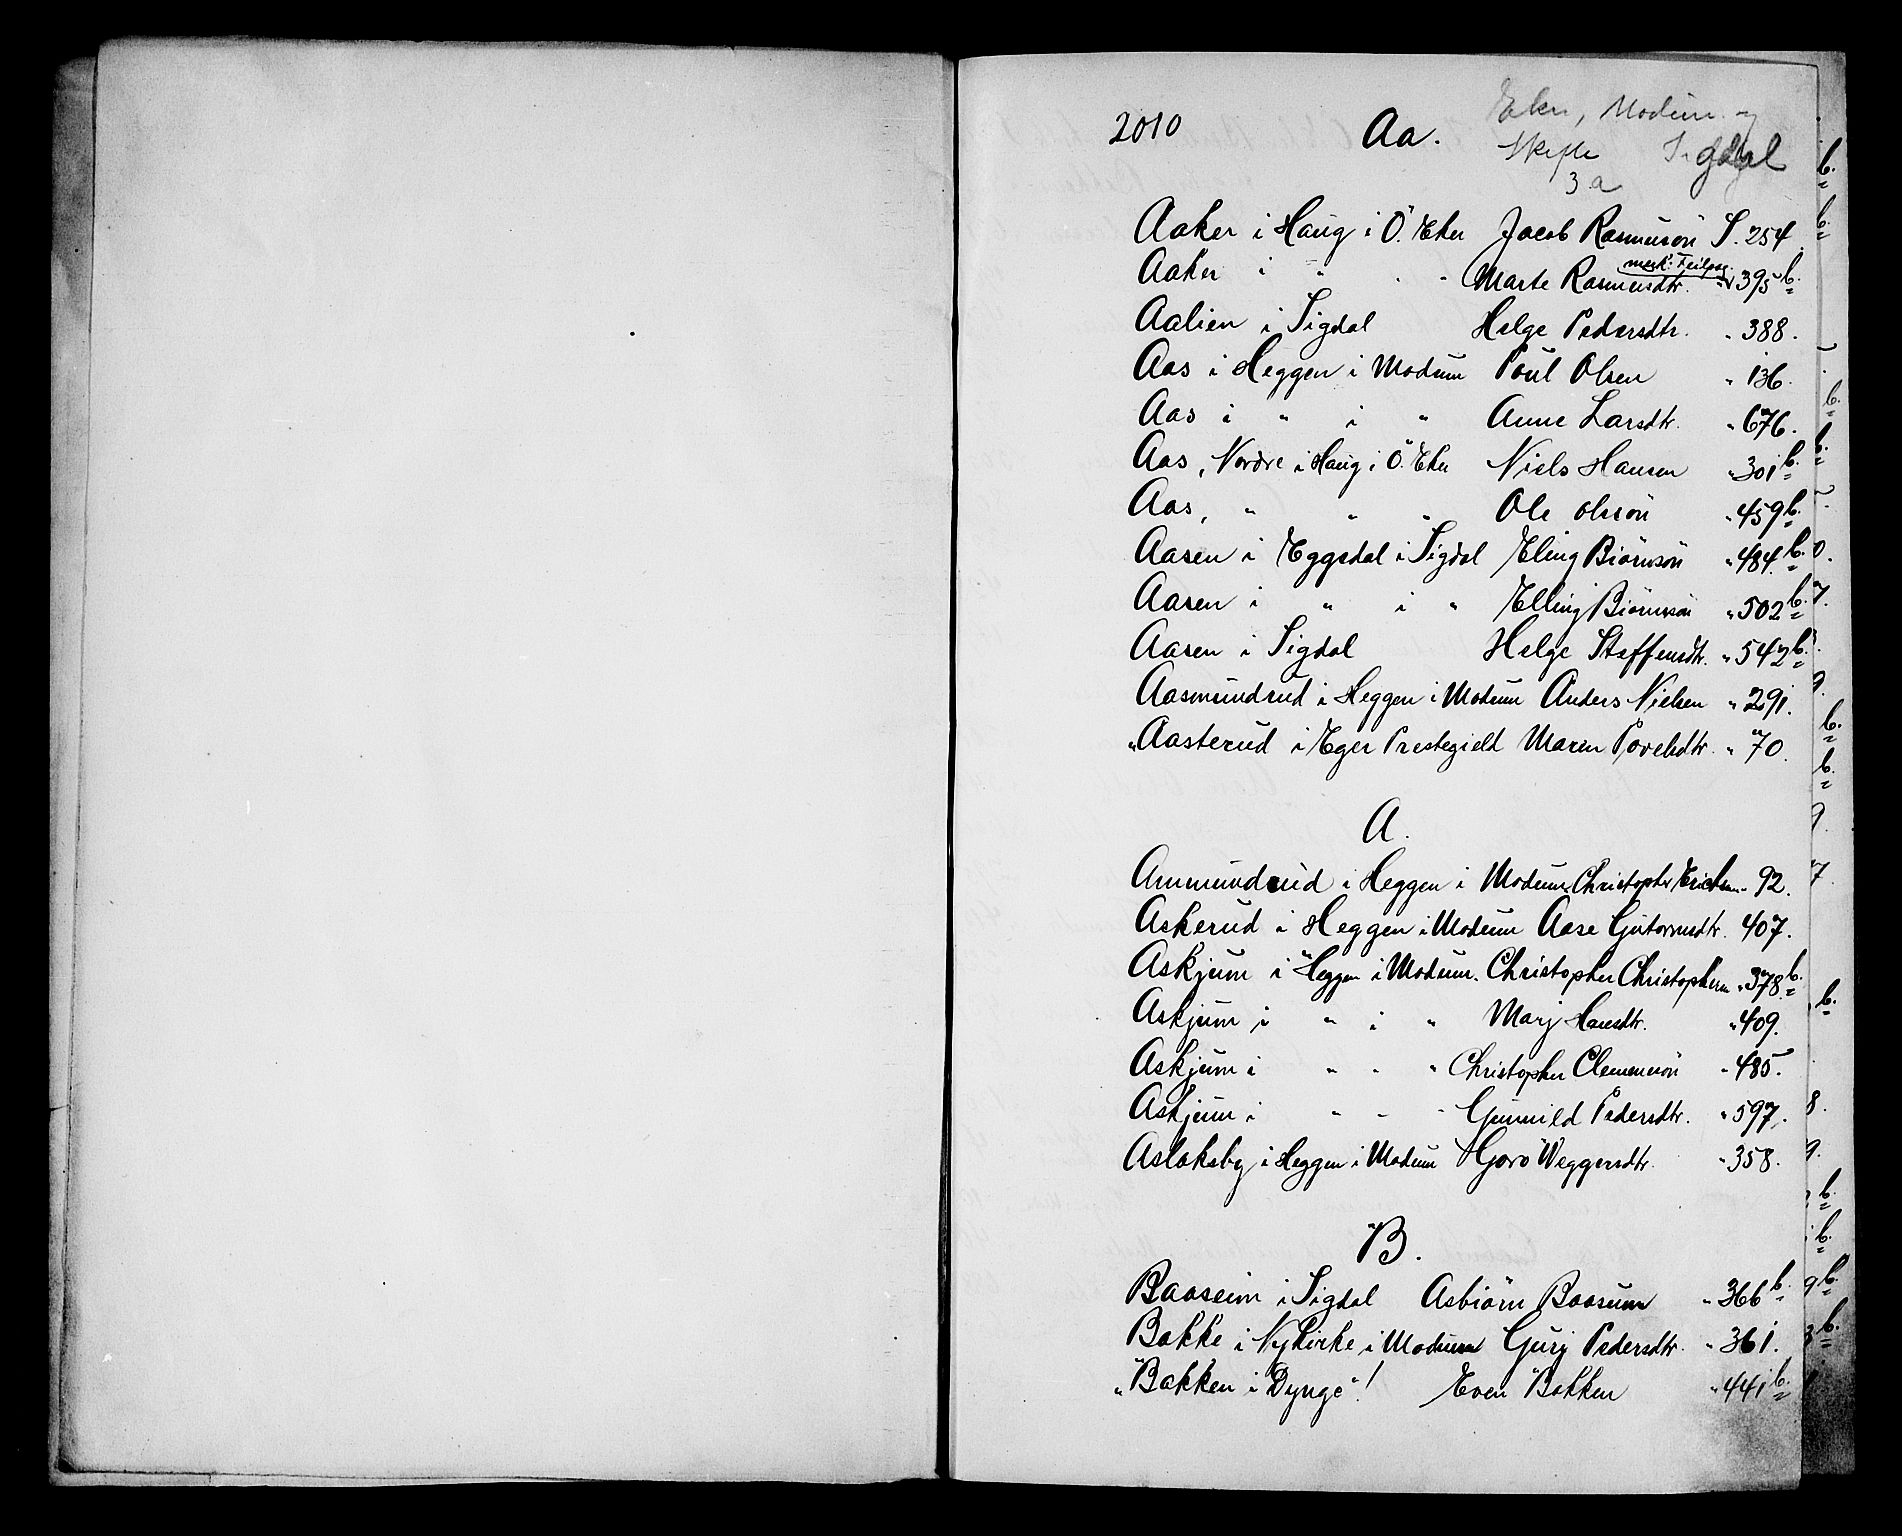 2010 Aa. Eker, Modum og
Skifte Sigdal
3 a
Aaker i Haug i Ö. Eker Jacob Rasmusön S. 254
Aaker i " . - Marte Rasmusdtr. merk: Feilpag. " 395 b.
Aalien i Sigdal Helge Pedersdtr. " 388.
Aas i Heggen i Modum Poul Olsen " 136.
Aas i " i " Anne Larsdtr. " 676.
Aas, Nordre i Haug i Ö. Eker Niels Hansen " 301 b.
Aas, " " " Ole Olsön " 459 b.
Aasen i Eggedal i Sigdal Eling Biörnsön " 484. b.
Aasen i " i " Elling Biörnsön " 502 b.
Aasen i Sigdal Helge Steffensdtr. " 542 b.
Aasmundrud i Heggen i Modum Anders Nielsen " 291.
"Aasterud i Eger Prestegield Maren Povelsdtr. " 70.
A.
Ammundrud i Heggen i Modum Christopher Ericksen " 92.
Askerud i Heggen i Modum Aase Gutormsdtr. 407.
Askjum i Heggen i Modum. Christopher Christophersen " 378. b.
Askjum i " i " Marj Hansdtr. " 409.
Askjum i " - " Christopher Clemmesön " 485.
Askjum i " - - Gunnild Pedersdtr. " 597.
Aslaksby i Heggen i Modum Goro Weggersdtr. " 358.
B.
Baaseim i Sigdal Asbiörn Baasum " 366 b.
Bakke i Nykirke i Modum Gurj Pedersdtr. " 361.
"Bakken i Dynge"! Even Bakken " 441 b.